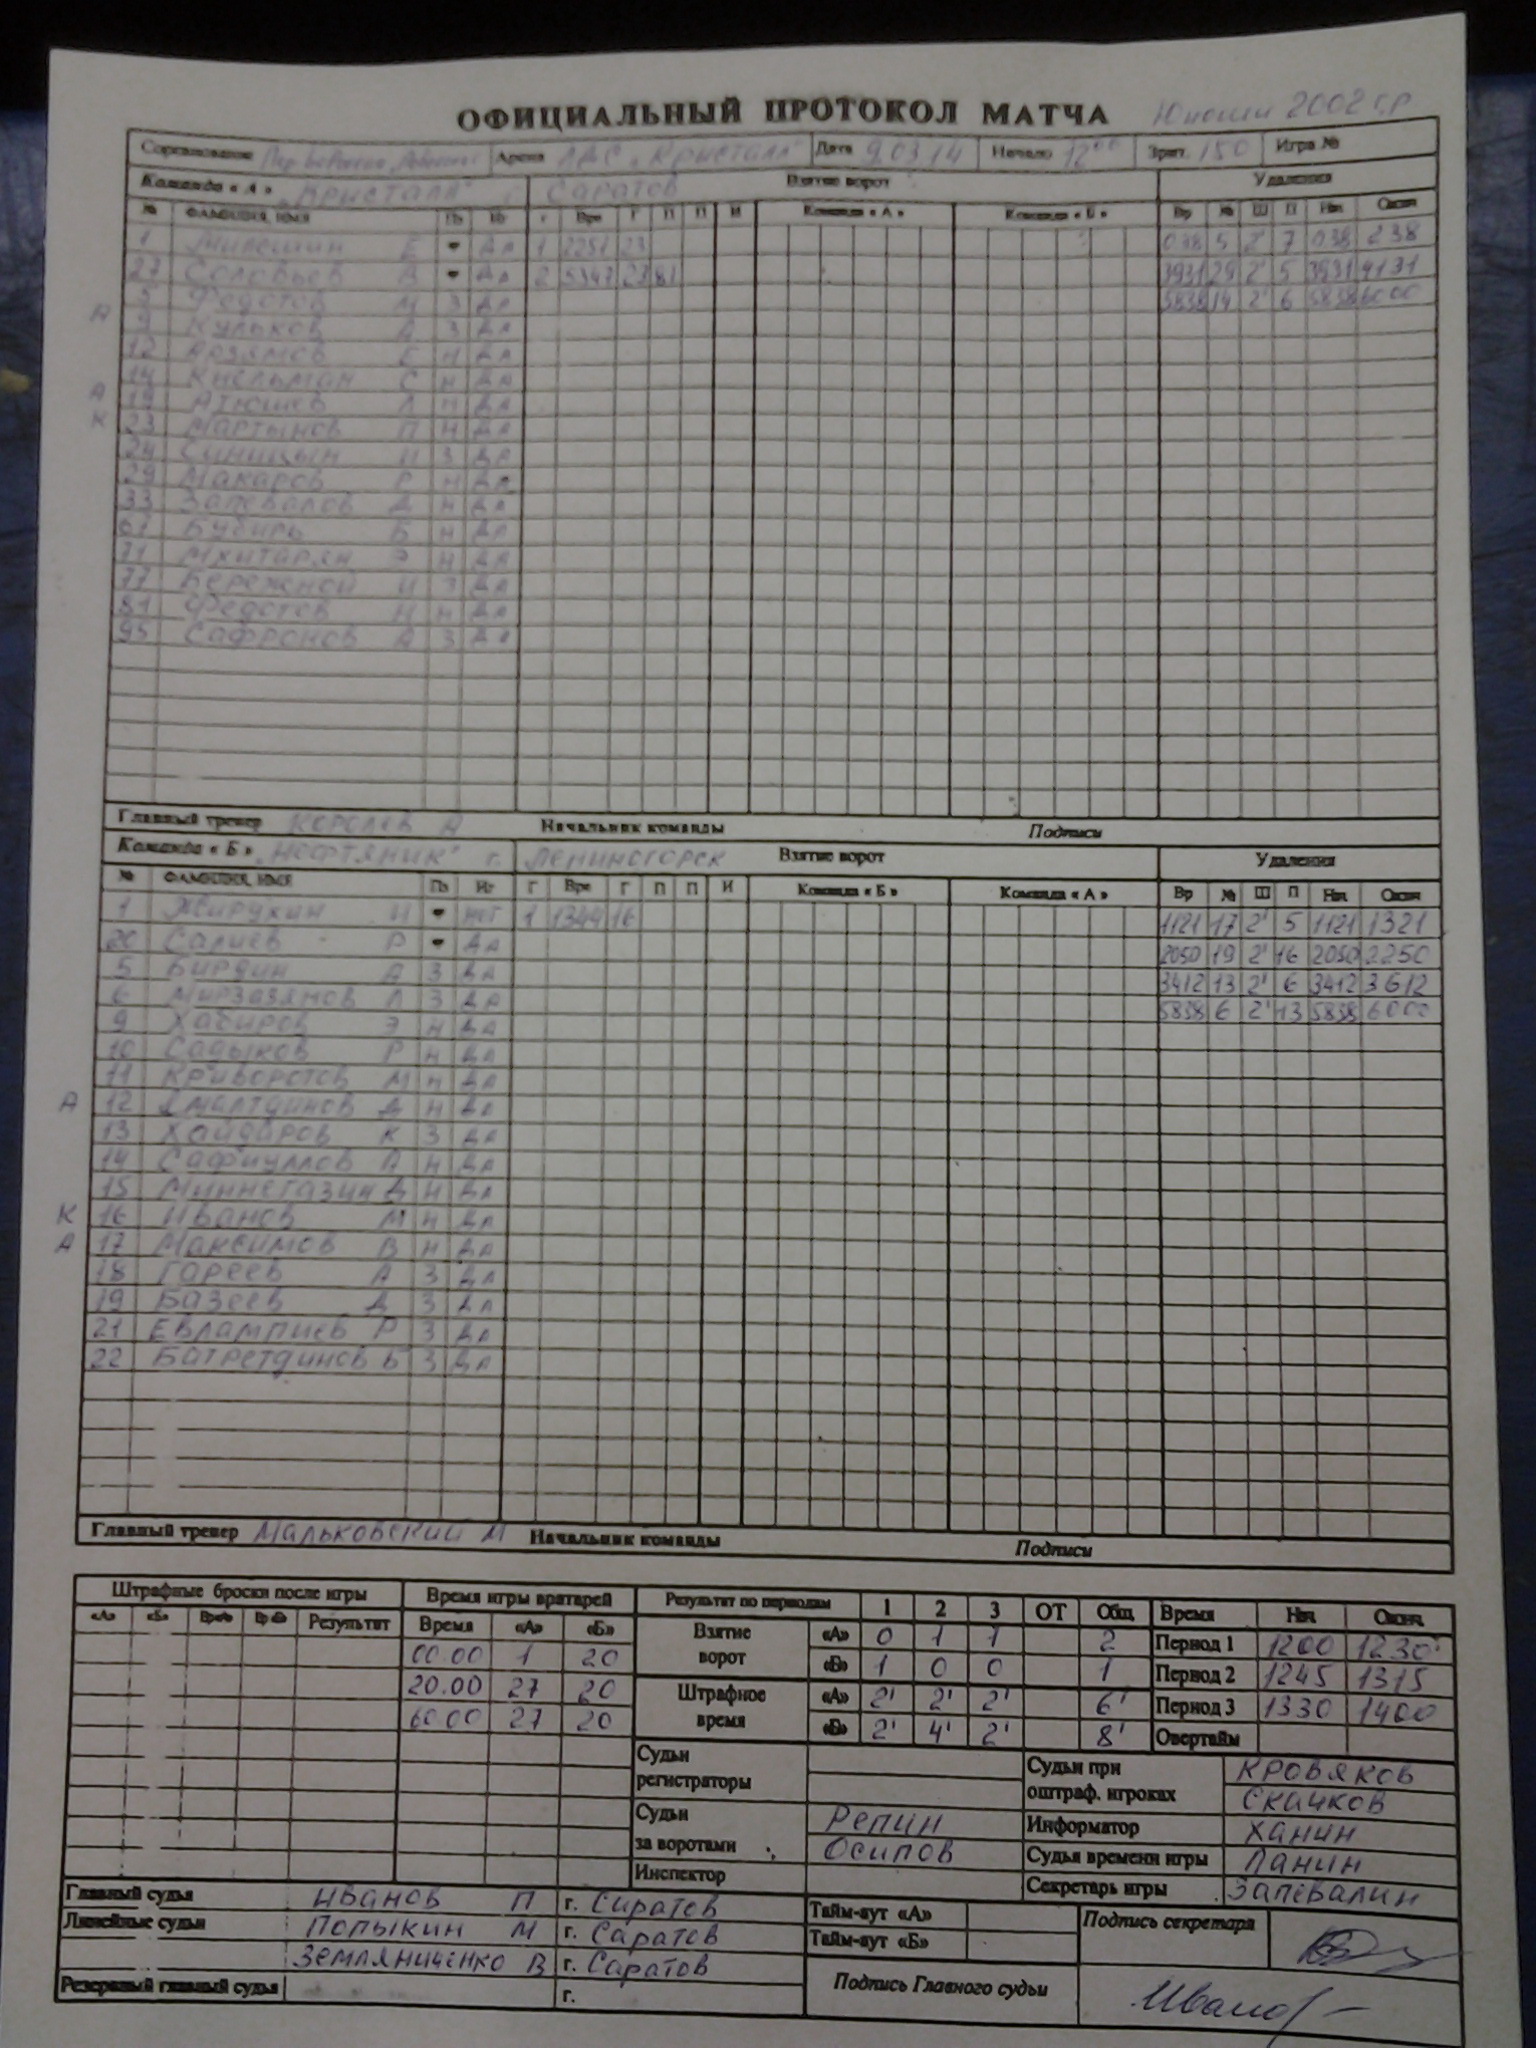 ОФИЦИАЛЬНЫЙ ПРОТОКОЛ МАТЧА Юноши 2002 г.р
Соревнование Арена ЛДС "Кристалл" Дата 9.03.14 Начало 12 00 Зрит. 150 Игра №
Команда «А» "Кристалл" г. Саратов Взятие ворот Удаления
№ ФАМИЛИЯ, ИМЯ Пз Иг Г Вре Г П П И Команда «А» Команда «Б» Вр № Ш П Нач Оконч
1 Е Да 1 2251 23 038 5 2' 7 038 238
27 Соловьев В Да 2 5347 23 81 3931 29 2' 5 3931 4131
5 Федотов М З Да 5838 14 2' 6 5838 6000
А 9 Кульков Д З Да
12 Арзямов Е Н Да
14 Кнельман С Н Да
А 19 Атюшев Л Н Да
К 23 Мартынов П Н Да
24 Синицын И З Да
29 Макаров Р Н Да
33 Запевалов Д Н Да
67 Бубирь Б Н Да
71 Мхитарян Э Н Да
77 Бережной И З Да
81 Федотов Н Н Да
95 Сафронов А З Да
Главный тренер Королев А Начальник команды Подписи
Команда «Б» "Нефтяник" г. Лениногорск Взятие ворот Удаления
№ ФАМИЛИЯ, ИМЯ Пз Иг Г Вре Г П П И Команда «Б» Команда «А» Вр № Ш П Нач Оконч
1 Жирухин И нет 1 1344 16 1121 17 2' 5 1121 1321
20 Салиев Р Да 2050 19 2' 16 2050 2250
5 Бирдин А З Да 3412 13 2' 6 3412 3612
6 Мирзазянов Л З Да 5838 6 2' 13 5838 6000
9 Хабиров Э Н Да
10 Садыков Р Н Да
11 Криворотов М Н Да
А 12 Ямалтдинов Д Н Да
13 Хайдаров К З Да
14 Сафиуллов А Н Да
15 Миннегазин Д Н Да
К 16 Иванов М Н Да
А 17 Максимов В Н Да
18 Гареев А З Да
19 Базеев Д З Да
21 Евлампиев Р З Да
22 Батретдинов Б З Да
Главный тренер Мальковский М Начальник команды Подписи
Штрафные броски после игры Время игры вратарей Результат по периодам 1 2 3 ОТ Общ Время Нач. Оконч.
«А» «Б» Вр«А» Вр«Б» Результат Время «А» «Б» Взятие ворот «А» 0 1 1 2 Период 1 1200 1230
00.00 1 20 «Б» 1 0 0 1 Период 2 1245 1315
20.00 27 20 Штрафное время «А» 2' 2' 2' 6' Период 3 1330 1400
60.00 27 20 «Б» 2' 4' 2' 8' Овертайм
Судьи регистраторы Судьи при оштраф. игроках Кровяков
Скачков
Судьи за воротами Репин Информатор Ханин
Осипов Судья времени игры Панин
Инспектор Секретарь игры Запевалин
Главный судья Иванов П г. Саратов Тайм-аут «А» Подпись секретаря
Линейные судьи Полыкин М г. Саратов Тайм-аут «Б»
Земляниченко В г. Саратов Подпись Главного судьи Иванов
Резервный главный судья г.